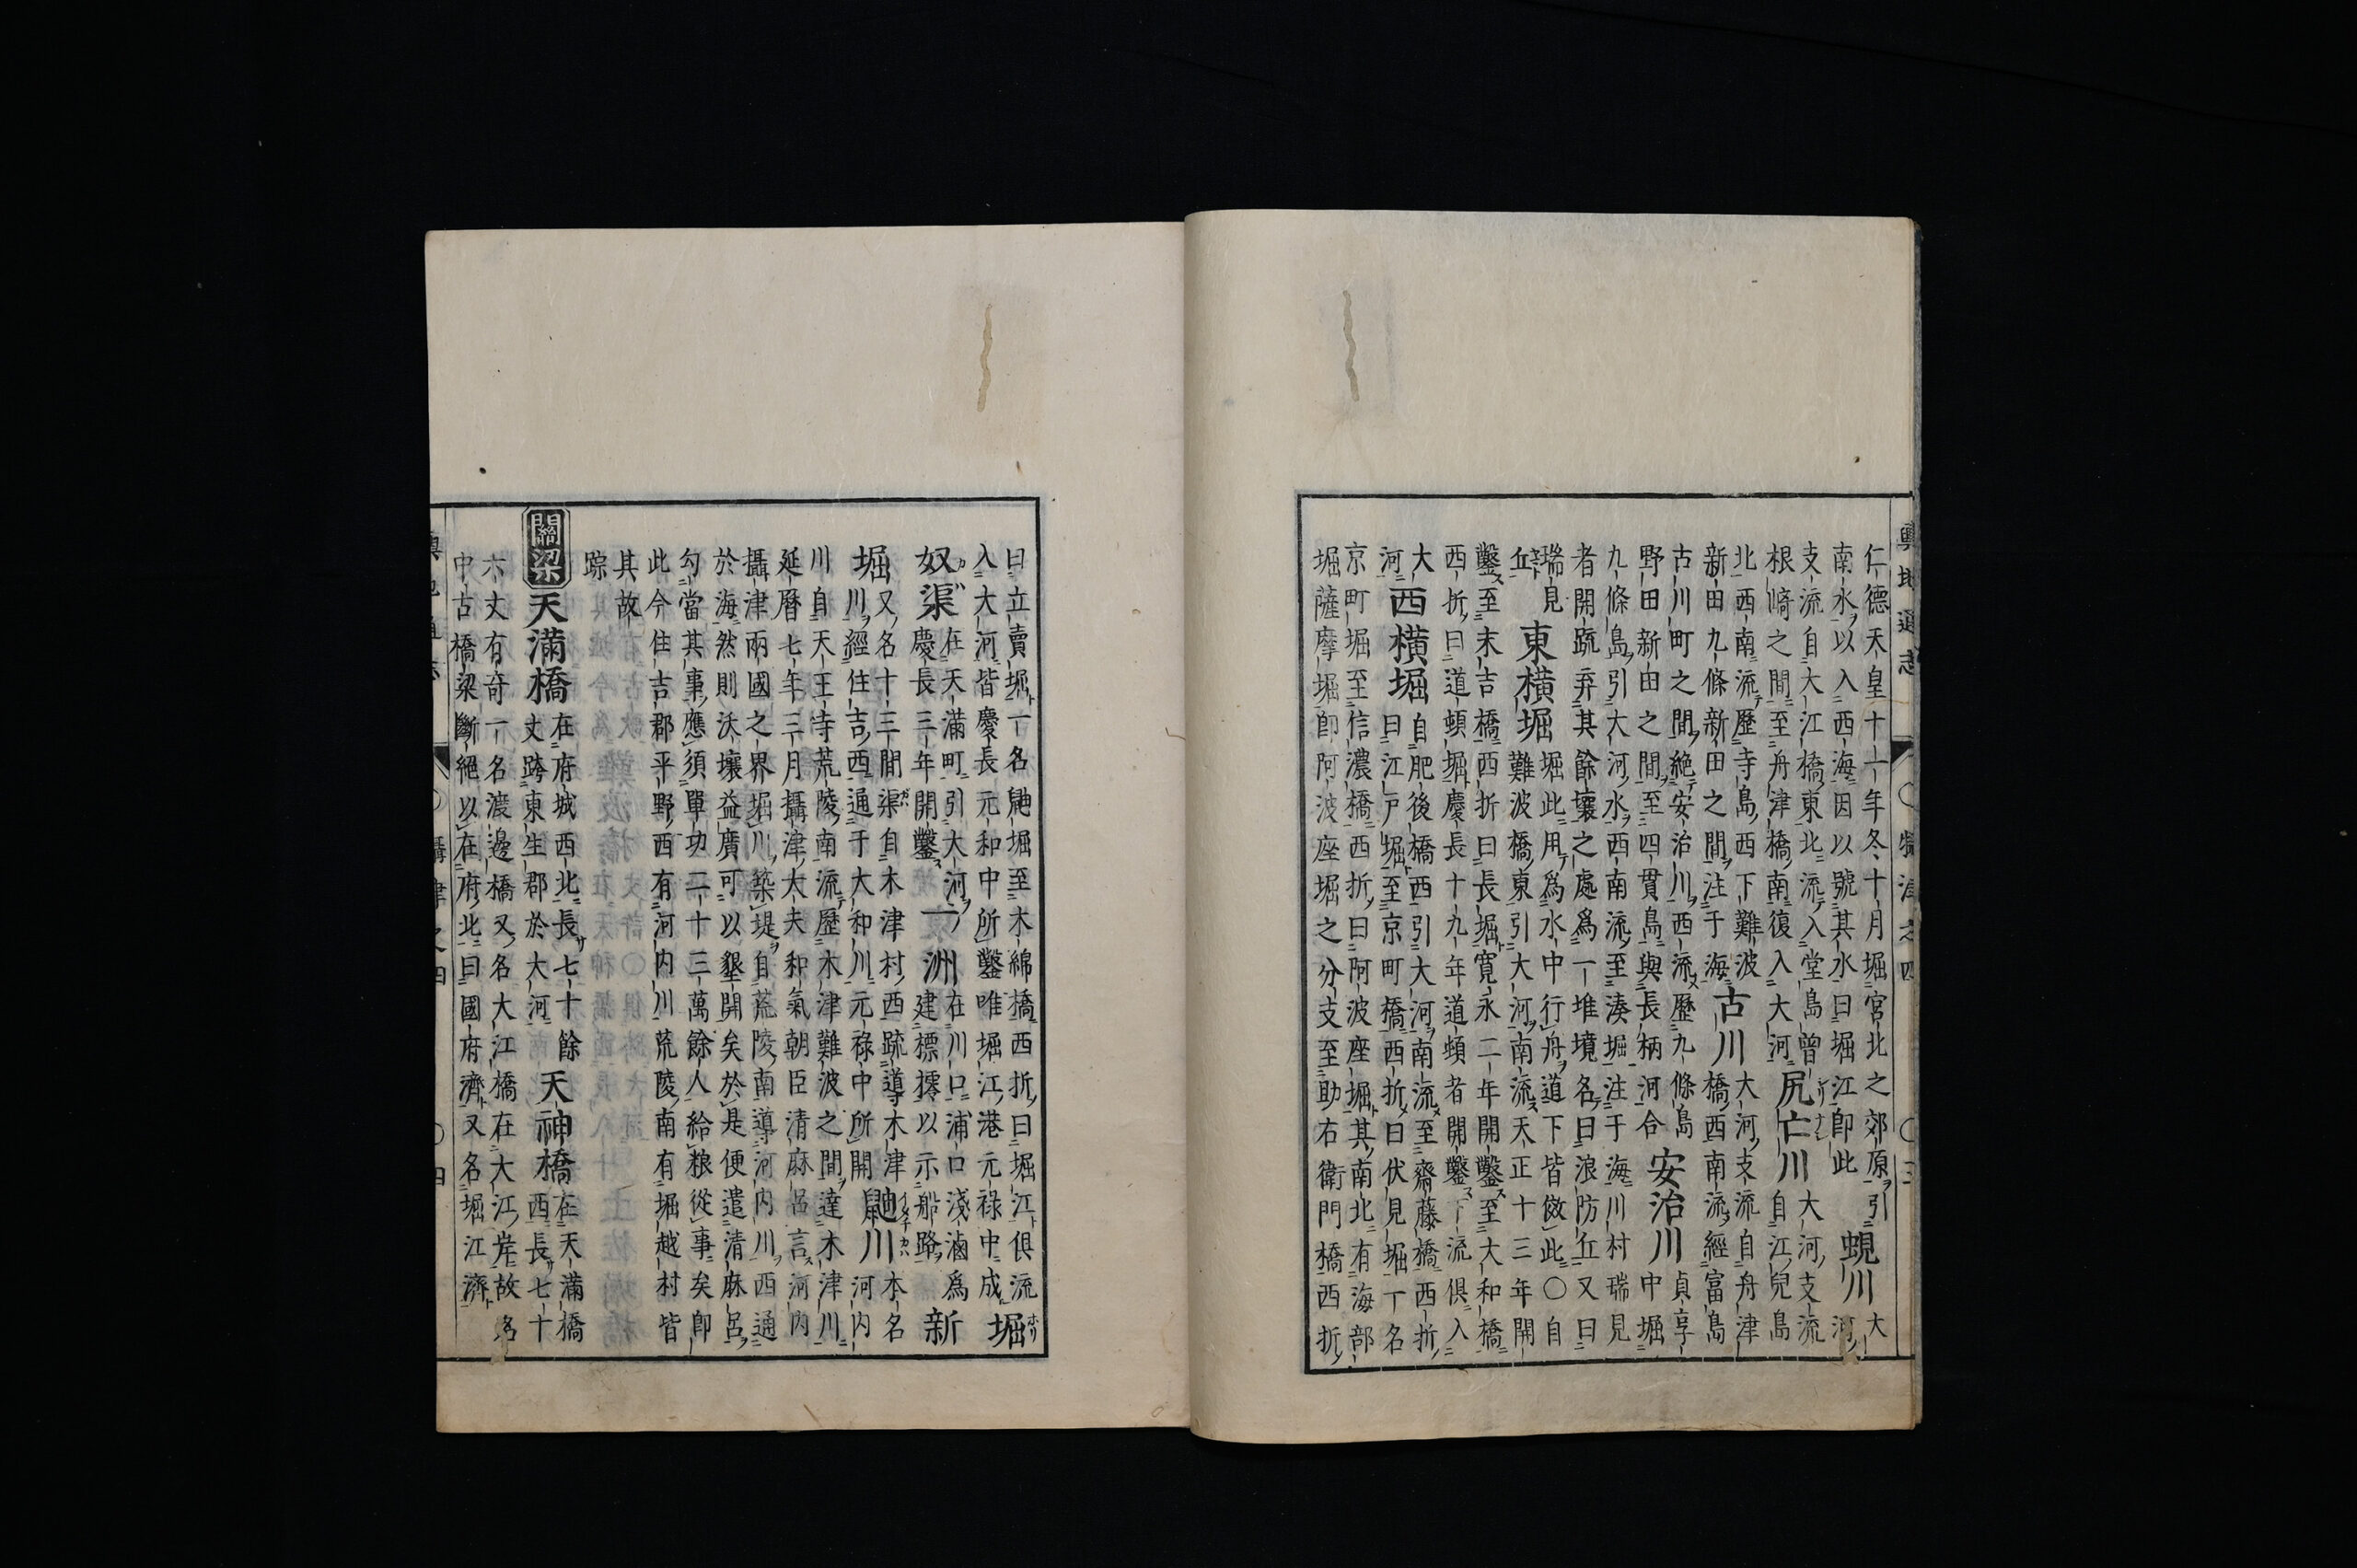 輿地通志
○攝津之四
○三
仁德天皇十一年冬十月堀宮北之郊原引
南水以入西海因以號其水曰堀江即此
蜆川
大
河
支流自大江橋東北流入堂島曾
根﨑之間至舟津橋南復入大河
尻亡川
大河支流
自江兒島
北西南流歷寺島西下難波
新田九條新田之間注于海
古川
大河支流自舟津
橋西南流經富島
古川町之間絶安治川西流歷九條島
野田新田之間至四貫島與長柄河合
安治川
貞享
中堀
九條島引大河水西南流至湊堀注于海川村瑞見
者開䟽弃其餘壤之處爲一堆墳名曰浪防丘又曰
瑞見
丘
東橫堀
堀此用爲水中行舟道下皆倣此○自
難波橋東引大河南流天正十三年開
鑿至末吉橋西折曰長堀寛永二年開鑿至大和橋
西折曰道頓堀慶長十九年道頓者開鑿下流俱入
大
河
西橫堀
自肥後橋西引大河南流至齋藤橋西折
曰江戸堀至京町橋西折曰伏見堀一名
京町堀至信濃橋西折曰阿波座堀其南北有海部
堀薩摩堀即阿波座堀之分支至助右衛門橋西折
曰立賣堀一名鼬堀至木綿橋西折曰堀江俱流
入大河皆慶長元和中所鑿唯堀江港元禄中成
堀
奴渠
在天滿町引大河
慶長三年開鑿
一洲
在川口浦口淺滷爲
建標㯳以示船路
新
堀
又名十三間渠自木津村西䟽導木津
川經住吉西通于大和川元禄中所開
鼬川
本名
河内
川自天王寺荒陵南流歷木津難波之間達木津川
延曆七年三月攝津大夫和氣朝臣清麻呂言河内
攝津兩國之界堀川築堤自荒陵南導河内川西通
於海然則沃壤益廣可以墾開矣於是便遣清麻呂
勾當其事應須單功二十三萬餘人給粮從事矣即
此今住吉郡平野西有河内川荒陵南有堀越村皆
其故
踪
關梁
天滿橋
在府城西北長七十餘
丈跨東生郡於大河
天神橋
在天滿橋
西長七十
六丈有奇一名渡邊橋又名大江橋在大江岸故名
中古橋梁斷絕以在府北曰國府濟又名堀江濟